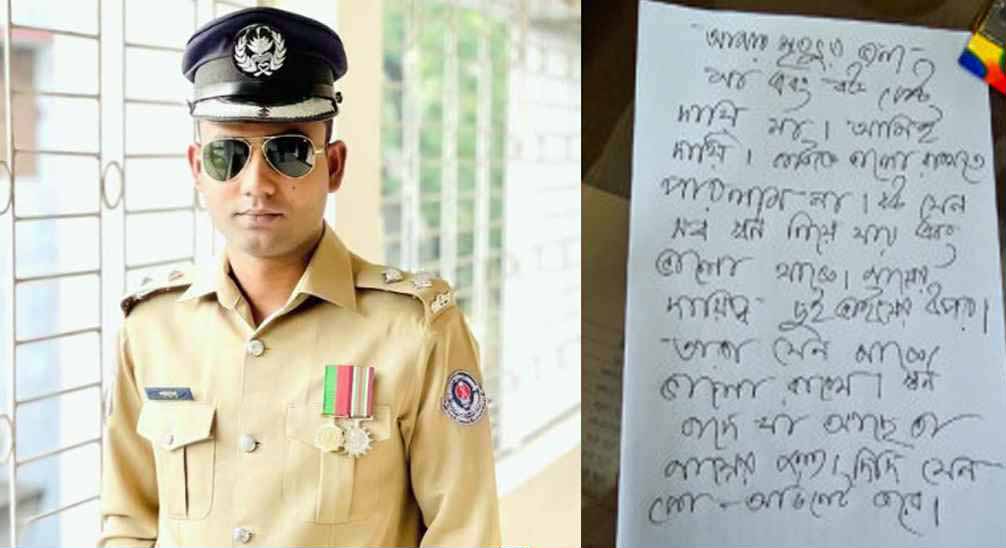 আমার মৃত্যুর জন্য
মা এবং বউ কেউ
দায়ী না। আমিই
দায়ী। কাউকে ভালো রাখতে
পারলাম না। বউ যেন
সব স্বর্ণ নিয়ে যায় এবং
ভালো থাকে। মায়ের
দায়িত্ব দুই ভাইয়ের উপর।
তারা যেন মাকে
ভালো রাখে। স্বর্ণ
বাদে যা আছে তা
মায়ের জন্য। দিদি যেন
কো-অর্ডিনেট করে।